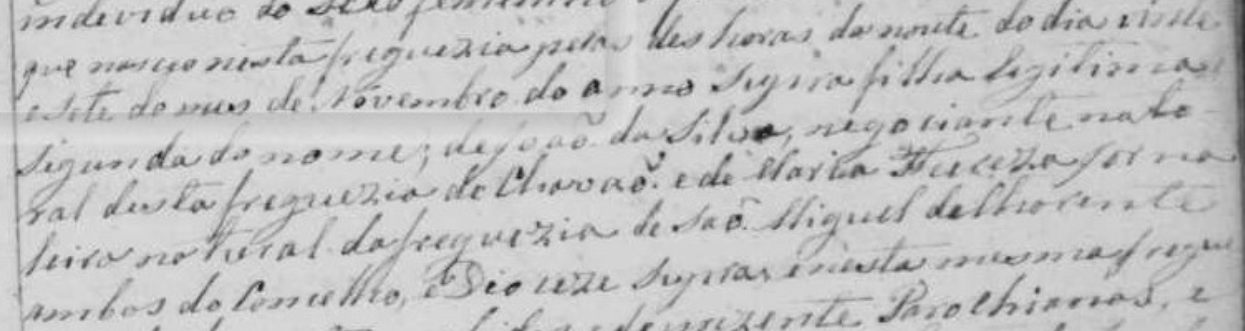 individuo do sexo femenino
que nasceo nesta freguezia pelas des horas da noute do dia vinte
e sete do mes de Novembro do anno supra filha legitima
sigunda do nome; de João da Silva, negociante natu-
ral desta freguezia de Chavaõ. e de Maria jorna
leira natural da freguezia de Saõ Miguel
ambos do Concelho, e Dioceze supra, e nesta mesma fregue
Parochianos, e